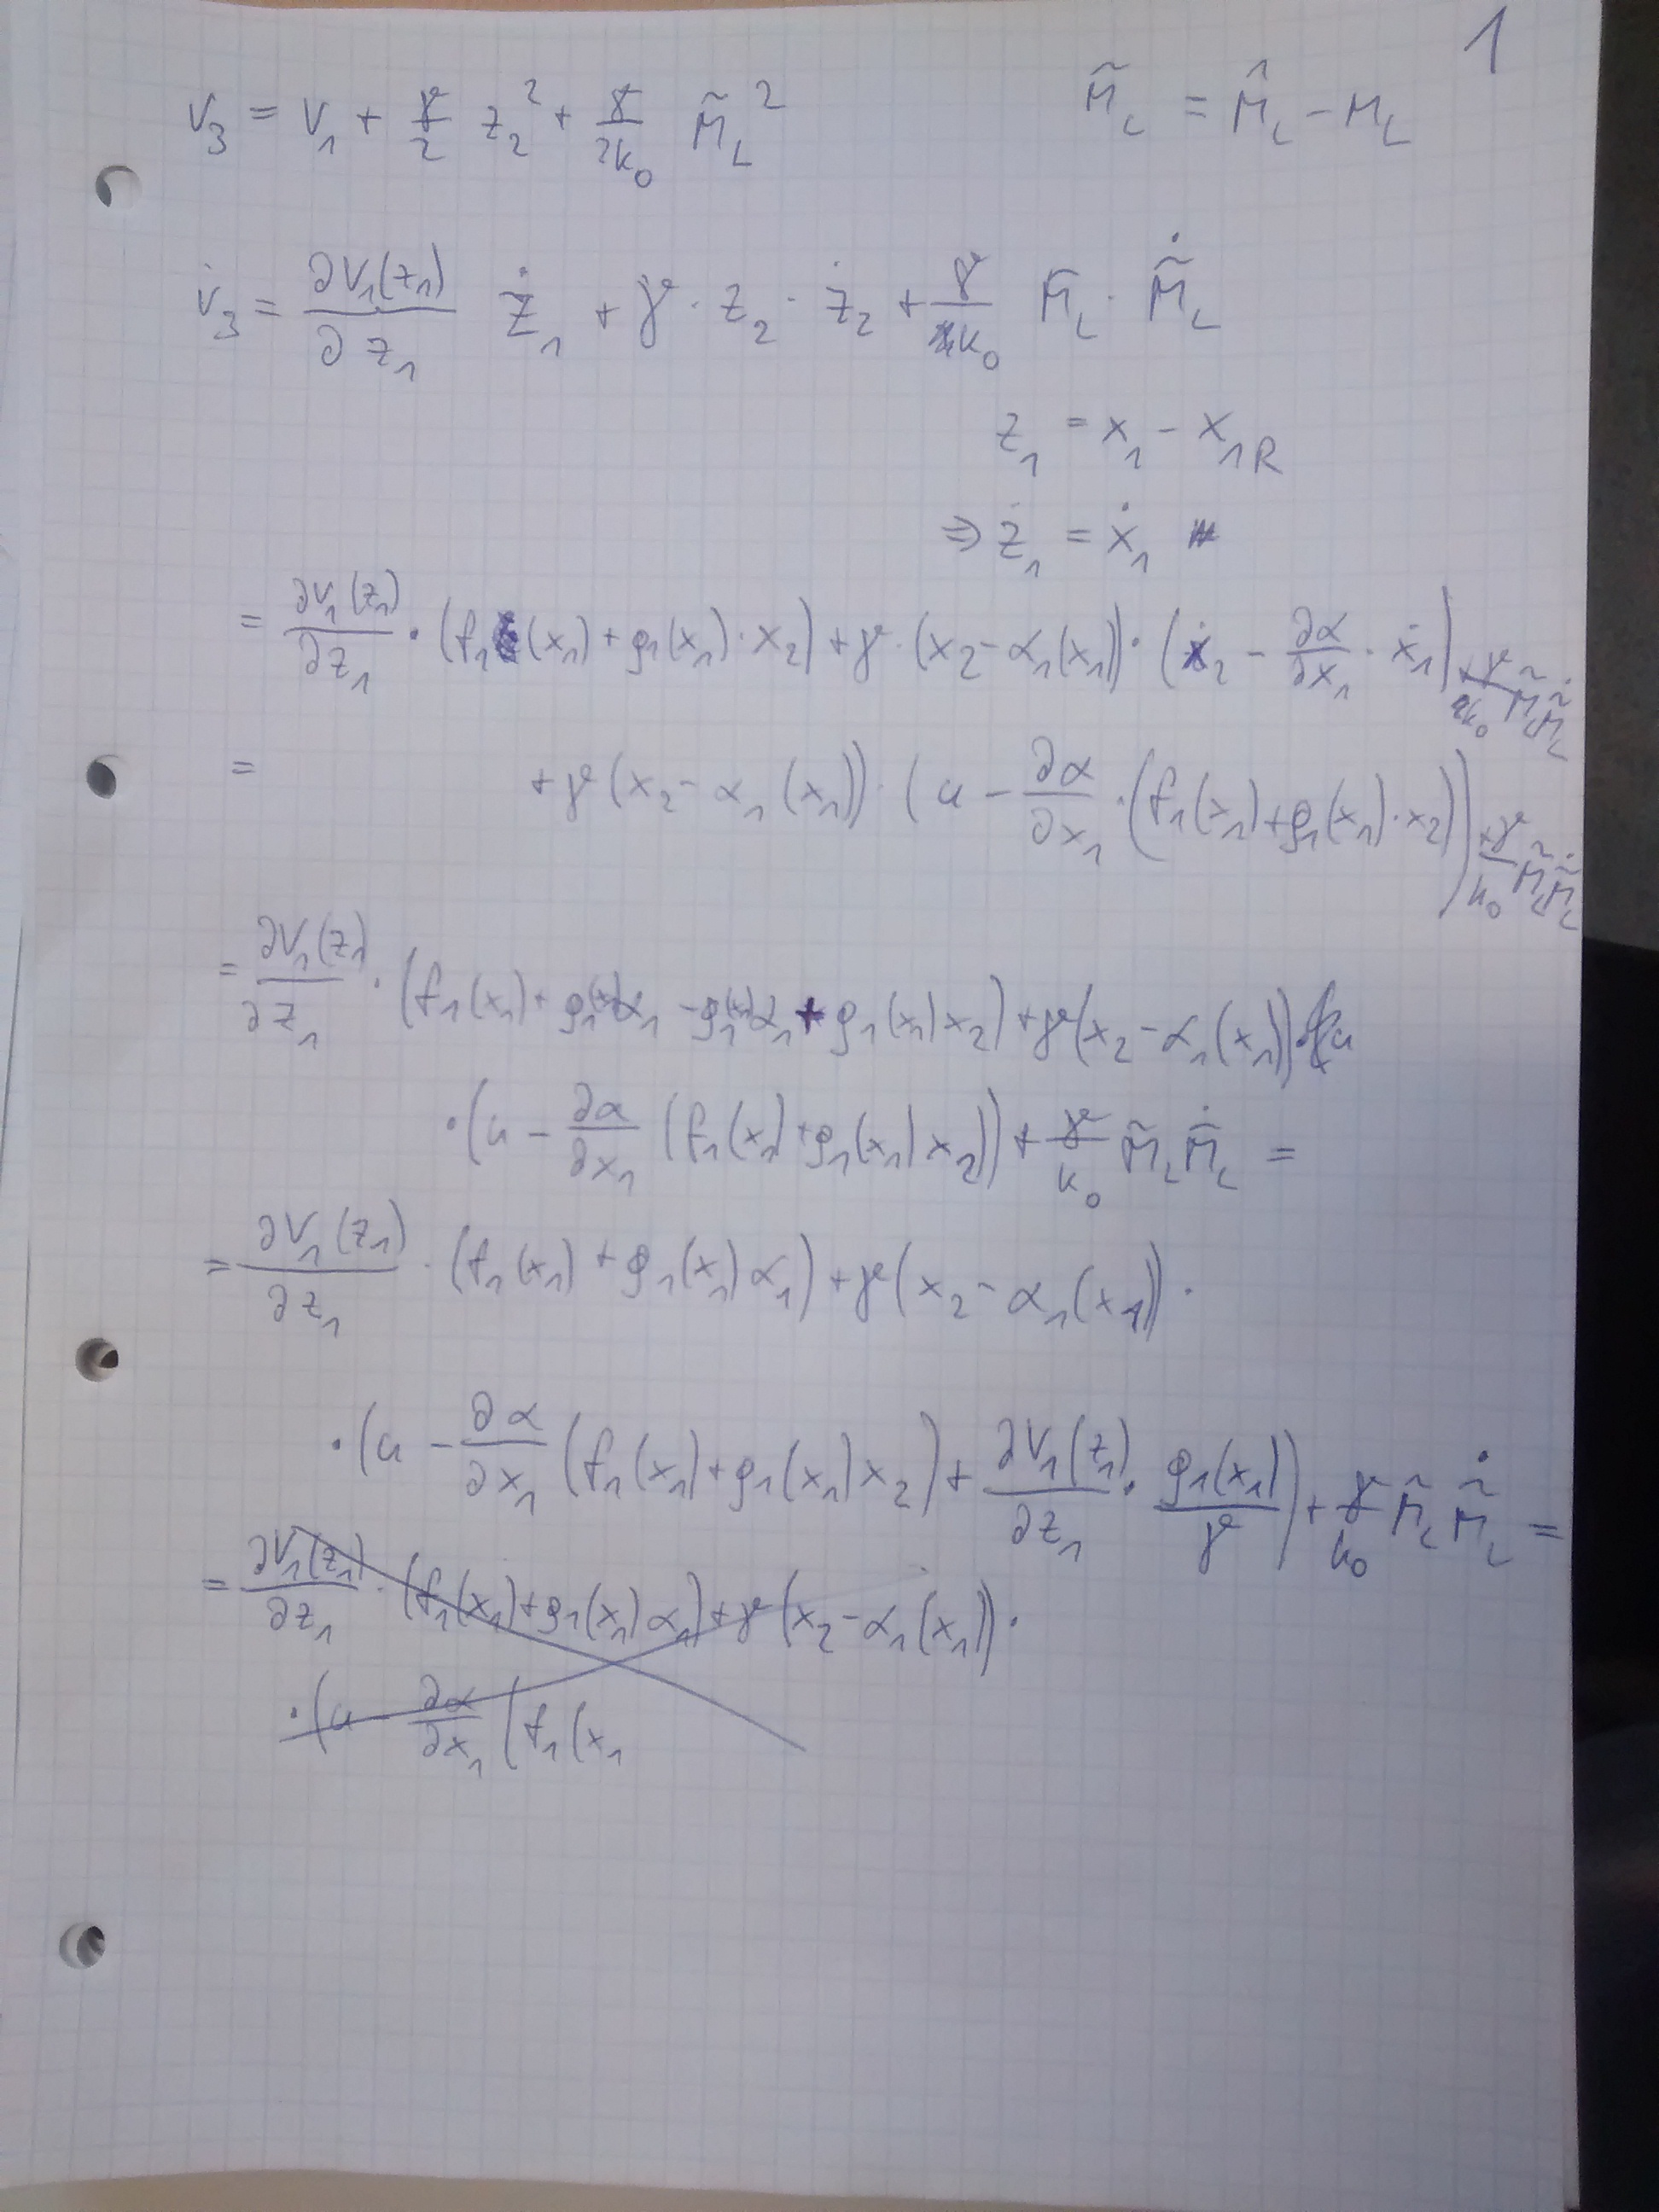 1
V₃ = V₁ + γ/2 z₂² + γ/2k₀ M̃_L²    M̃_L = M̂_L − M_L
V̇₃ = ∂V₁(z₁)/∂z₁ ż₁ + γ · z₂ · ż₂ + γ/k₀ M̃_L · M̃̇_L
z₁ = x₁ − x₁R
⇒ ż₁ = ẋ₁
= ∂V₁(z₁)/∂z₁ · (f₁(x₁) + g₁(x₁) · x₂) + γ · (x₂ − α₁(x₁)) · (ẋ₂ − ∂α/∂x₁ · ẋ₁) + γ/k₀ M̃_L M̃̇_L
= + γ(x₂ − α₁(x₁)) · (u − ∂α/∂x₁ · (f₁(x₁) + g₁(x₁) · x₂)) + γ/k₀ M̃_L M̃̇_L
= ∂V₁(z₁)/∂z₁ · (f₁(x₁) + g₁(x₁)α₁ − g₁(x₁)α₁ + g₁(x₁)x₂) + γ(x₂ − α₁(x₁)) ·
· (u − ∂α/∂x₁ (f₁(x₁) + g₁(x₁)x₂)) + γ/k₀ M̃_L M̃̇_L =
= ∂V₁(z₁)/∂z₁ · (f₁(x₁) + g₁(x₁)α₁) + γ(x₂ − α₁(x₁)) ·
· (u − ∂α/∂x₁ (f₁(x₁) + g₁(x₁)x₂) + ∂V₁(z₁)/∂z₁ · g₁(x₁)/γ) + γ/k₀ M̃_L M̃̇_L =
= ∂V₁(z₁)/∂z₁ · (f₁(x₁) + g₁(x₁)α₁) + γ(x₂ − α₁(x₁)) ·
· (u − ∂α/∂x₁ (f₁(x₁